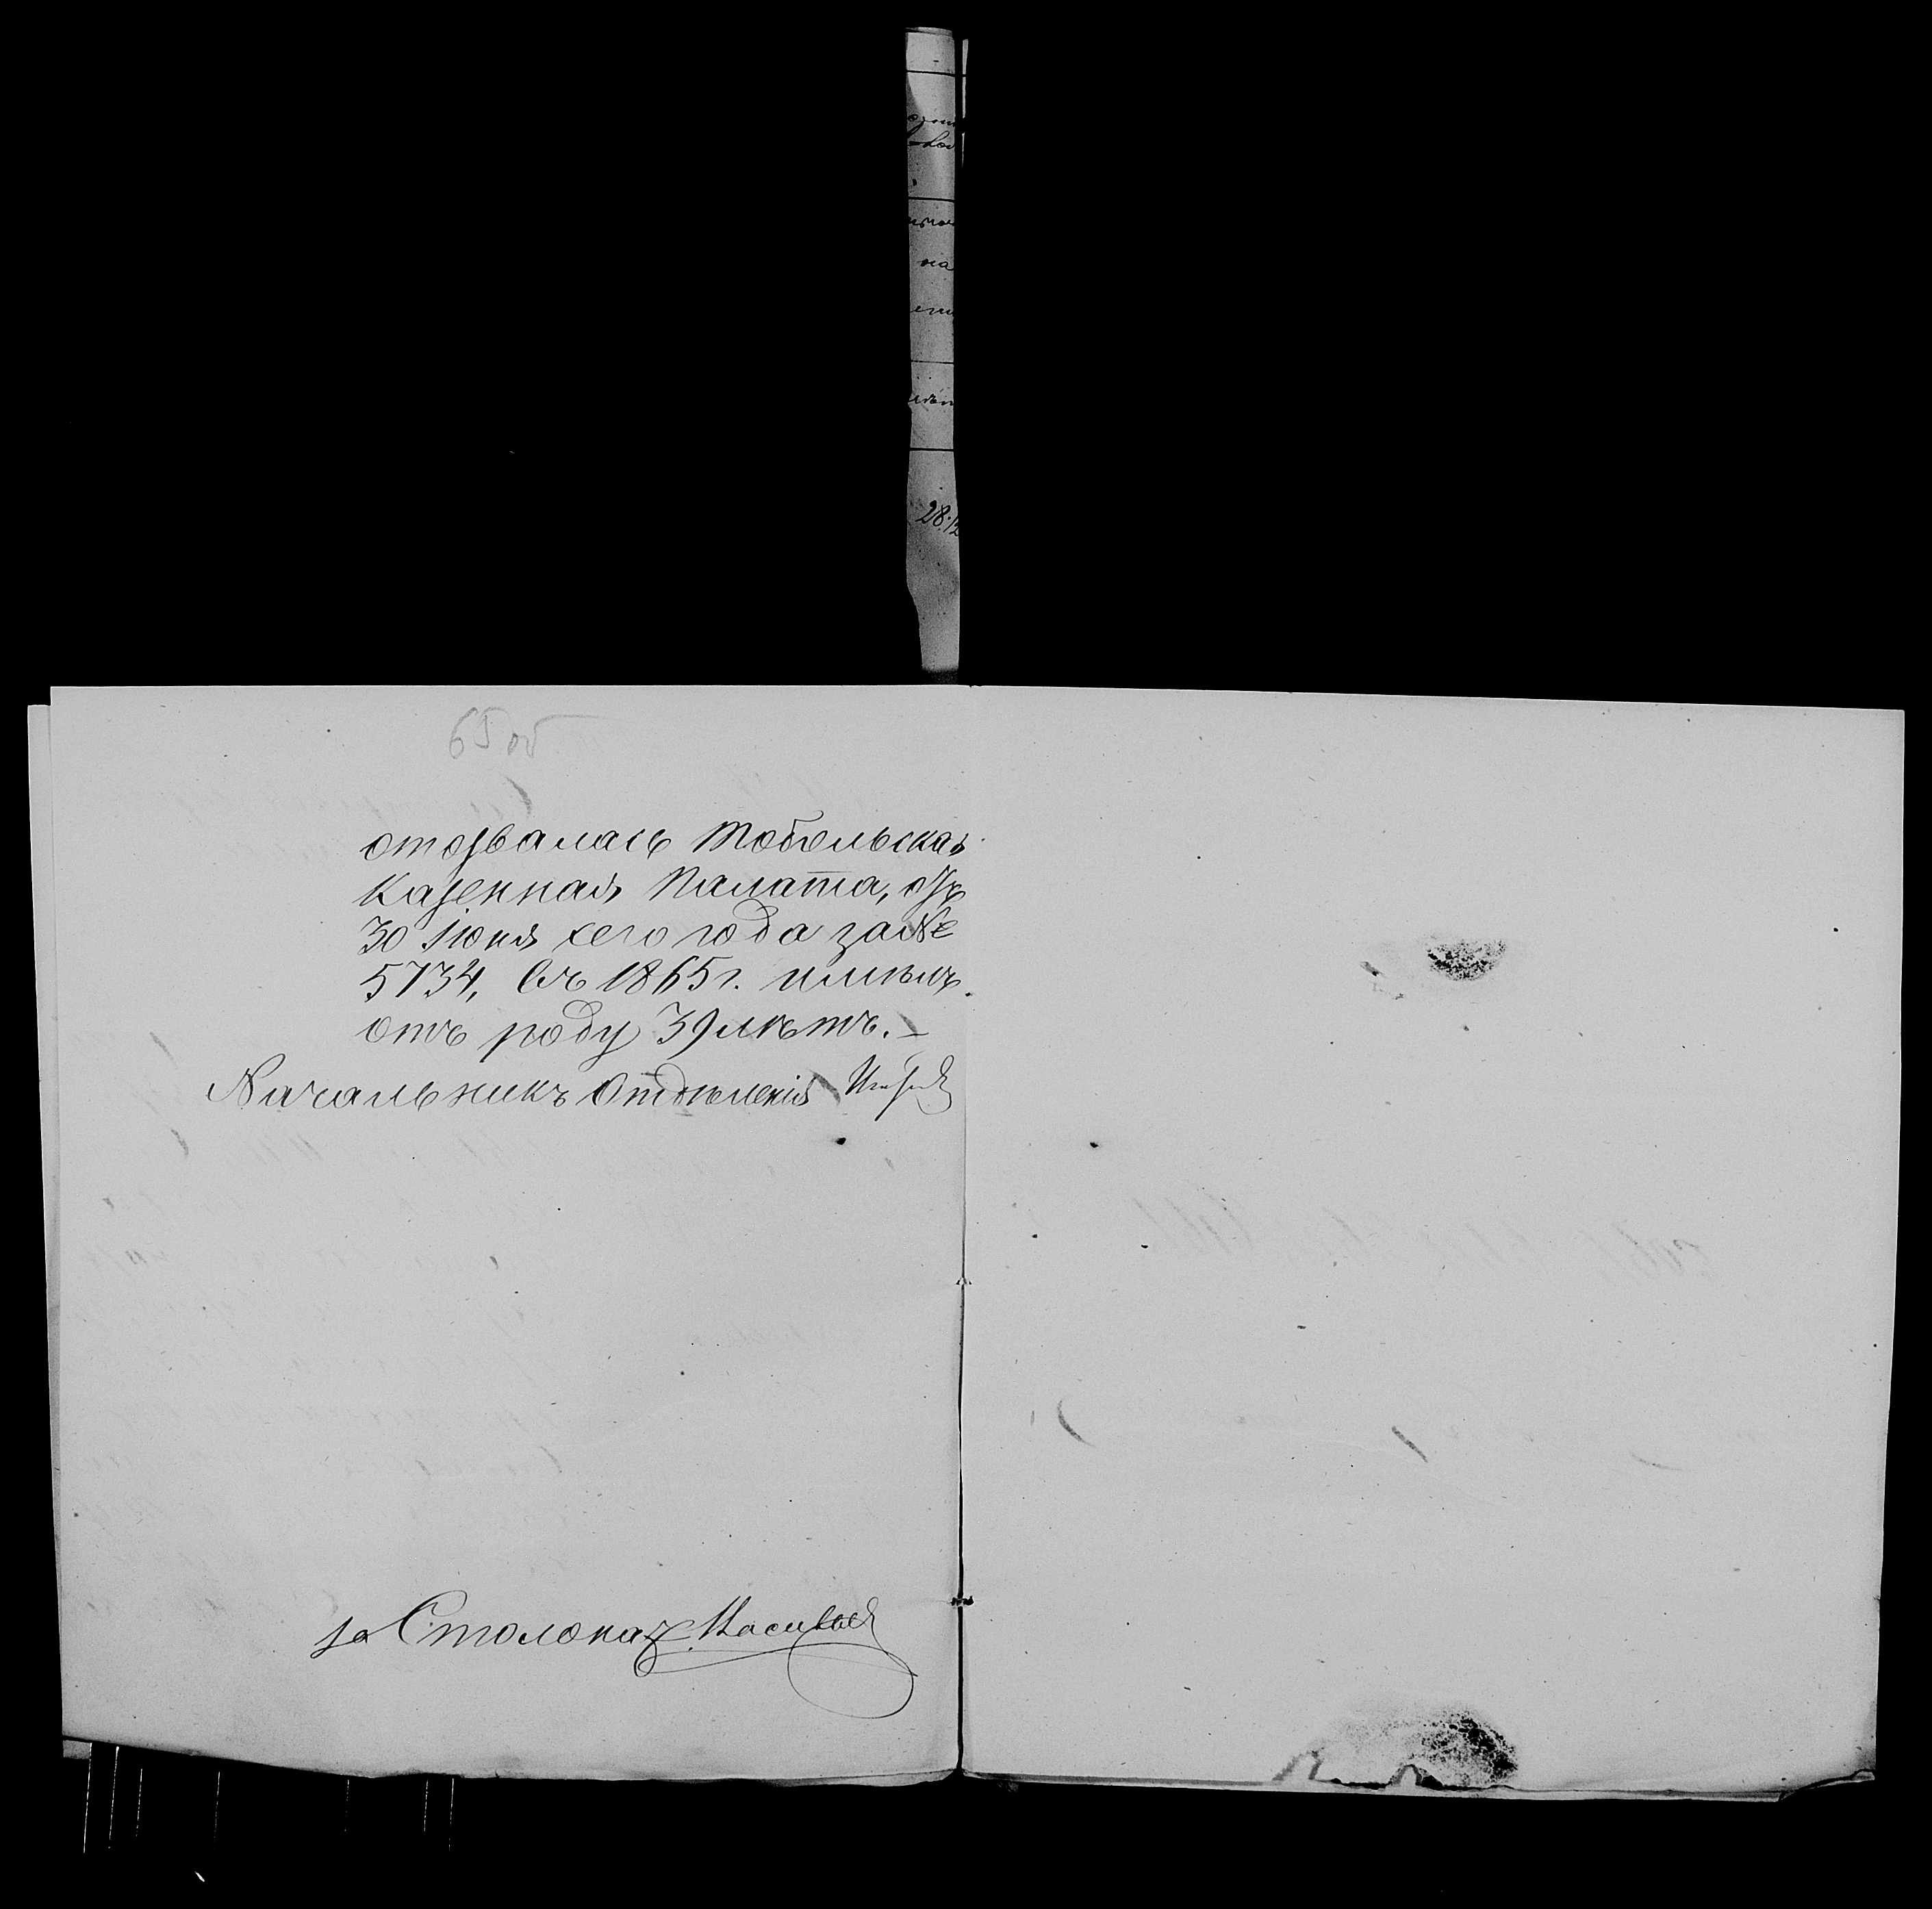 65 об
отозвалась Тобольская
Казенная Палата, отъ
30 Іюня сего года за №
5734, въ 1865 г. имѣлъ
отъ роду 39 лѣтъ. —
Начальникъ Отдѣленія
за Столонач.
на
28.12